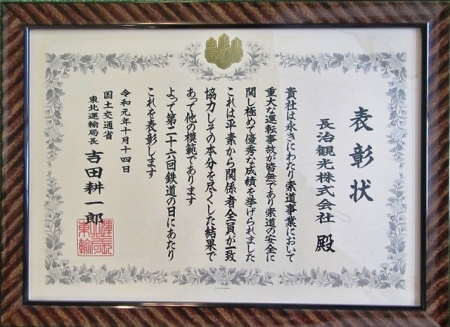 表彰状
長治観光株式会社 殿
貴社は永きにわたり索道事業において
重大な運転事故が皆無であり索道の安全に
関し極めて優秀な成績を挙げられました
これは平素から関係者全員が一致
協力しその本分を尽くした結果で
あって他の模範であります
よって第二十六回鉄道の日にあたり
これを表彰します
令和元年十月十四日
国土交通省
東北運輸局長 吉田耕一郎